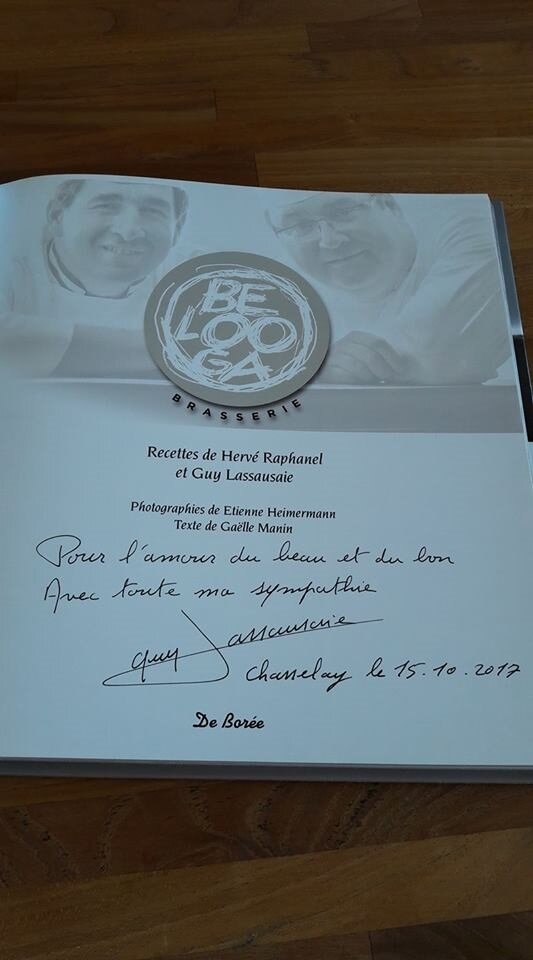 BE
LOO
GA
BRASSERIE
Recettes de Hervé Raphanel
et Guy Lassausaie
Photographies de Etienne Heimermann
Texte de Gaëlle Manin
Pour l'amour du beau et du bon
Avec toute ma sympathie
Guy Lassausaie
Chasselay le 15.10.2017
De Borée